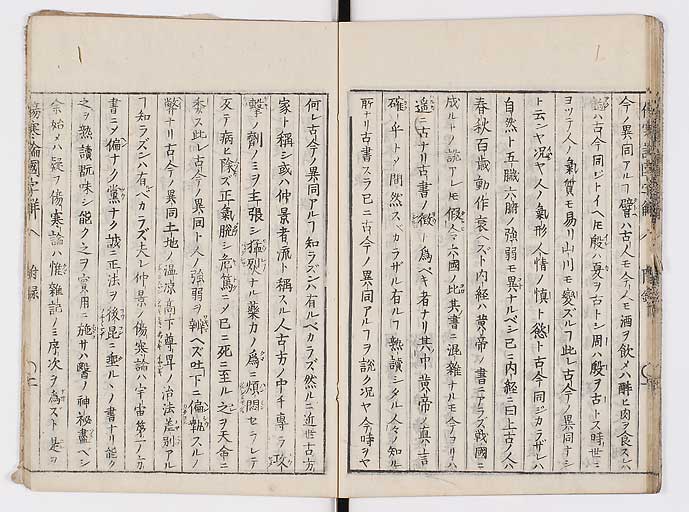 今ノ異同アルヿ譬ハ古人モ今ノモ酒ヲ飲メハ醉ヒ肉ヲ食スレハ
ハ古今同ジトイヘ𪜈殷ハ夏ヲ古トシ周ハ殷ヲ古トス時世ニ
ヨツテ人ノ氣質モ易リ山川モ変ズルヿ此レ古今ノ異同ナシ
ト云ンヤ況ヤ人ノ氣形人情ノ慎ト慾ト古今同ジカラザレハ
自然ト五臓六腑ノ強弱モ異ナルベシ已ニ内経ニ曰上古ノ人ハ
春秋百歳動作衰ヘズト内経ハ黄帝ノ書ニアラズ戦國ニ
成ルナノ説アレ𪜈假令六國ノ比其書ニ混雜ナルモ今ヨリハ
遥ニ古ナリ古書ノ徴ト為ベキ者ナリ其中黄帝ノ真言
確乎トノ間然スベカラザル有ルヿ熟讀シタル人々ノ知ル
所ナリ古書スラ已ニ古今ノ異同アルヿヲ説ク況ヤ今時ヲヤ
何レ古今ノ異同アルヿ知ラズンハ有ルベカラズ然ルニ近世古方
家ト稱シ或ハ仲景者流ト稱スル人古方ノ中チ專ラ攻
撃ノ劑ノミヲ主張シ猛烈ナル藥力ノ為ニ煩悶セラレテ
反テ病ヒ陰ズ正氣脱シ危篤ニノ已ニ死ニ至ル之ヲ天命ニ
委ス此レ古今ノ異同ト人ノ強弱ヲ辨ヘズ吐下ニ偏執スルノ
弊ナリ古今ノ異同土地ノ温涼高下尊卑ノ治法差別アル
ヿ知ラズンハ有ベカラズ夫レ仲景ノ傷寒論ハ宇宙第一ノ方
書ニノ偏ナク黨ナク誠ニ正法ヲ後昆ニ垂ルヽノ書ナリ能ク
之ヲ熟讀翫味シ能ク之ヲ實用ニ施サハ醫ノ神祕盡ベシ
余始メハ疑ヲ傷寒論ハ惟雜記ノミ序次ヲ為ズト是ヲ
傷寒論國字解八 附録